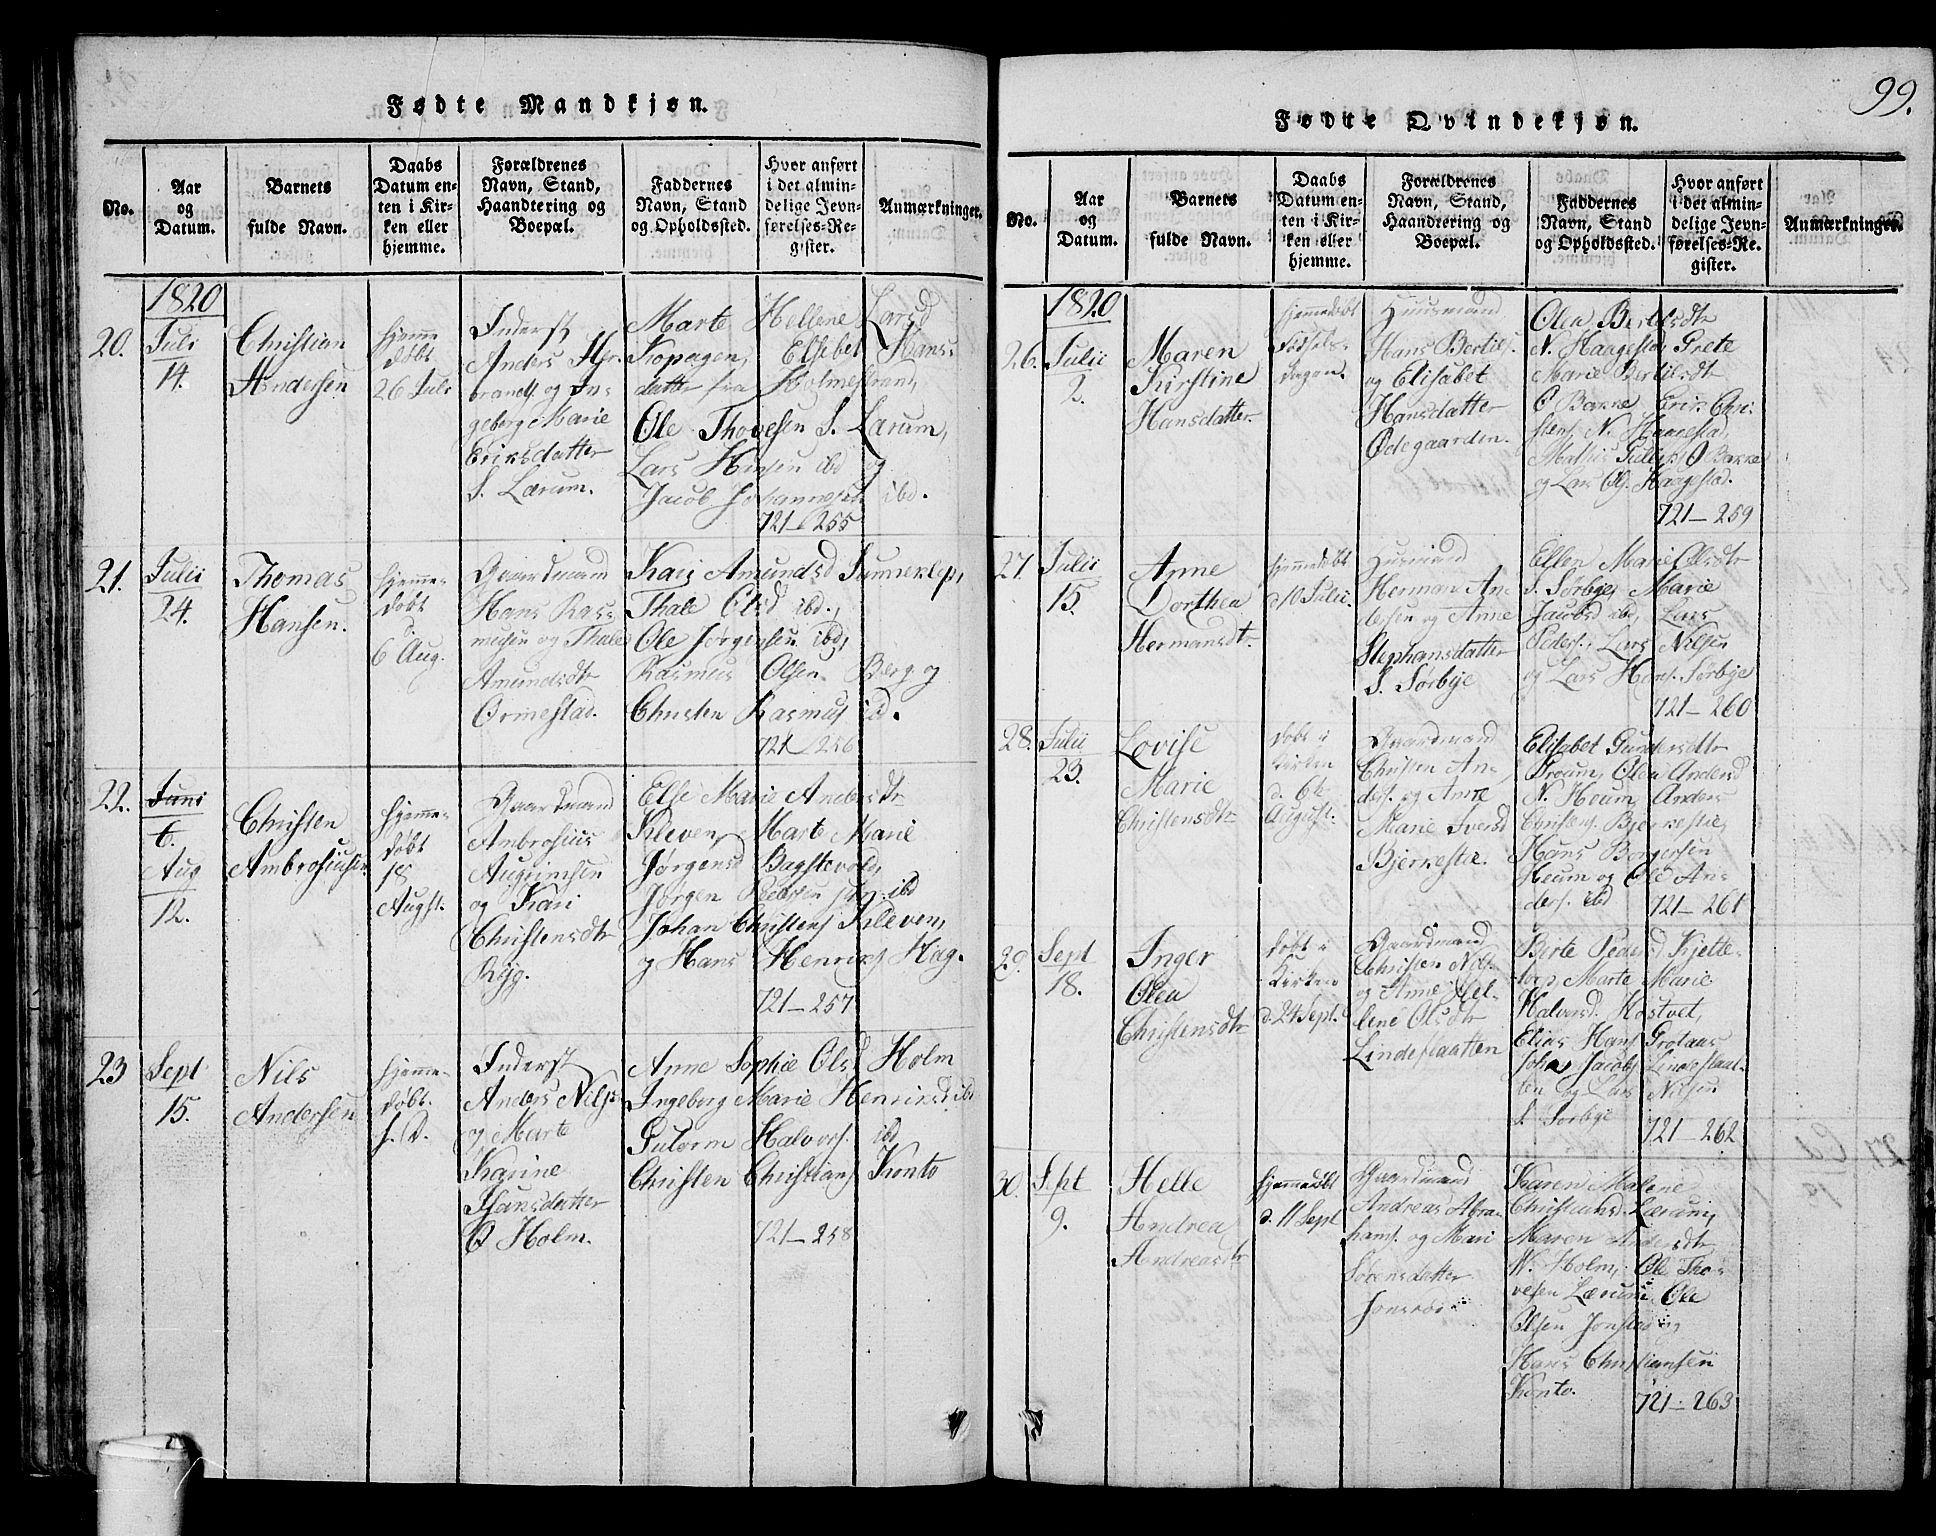 99.
Fødte Mandkjøn.
No.
Aar
og
Datum.
Barnets
fulde Navn.
Daabs
Datum en-
ten i Kir-
ken eller
hjemme.
Forældrenes
Navn, Stand,
Haandtering og
Boepæl.
Faddernes
Navn, Stand
og Opholdssted.
Hvor anført
i det almin-
delige Jevn-
førelses-Re-
gister.
Anmærkninger.
1820
20.
Juli
14.
Christian
Andersen
hjemme
døbt
26 Juli
Inderst
Anders Hy-
brandt og In-
geborg Marie
Eriksdatter
S. Lærum.
Marte Hellene Larsd
Kopagen, Elsebet Hans
datter fra Holmestrand,
Ole Thovesen S. Lærum,
Lars Hansen ibd og
Jacob Johannesen ibd.
721-255
21.
Julii
24.
Thomas
Hansen.
hjemme-
døbt
d.
6 Aug.
Gaardmand
Hans Ras-
musen og Thale
Amundsdtr
Ormestad.
Kari Amundsd Sunneklep,
Thale Olsd ibd.,
Ole Jørgensen ibd,
Rasmus Olsen Berg og
Christen Rasmus ibd.
721-256
22.
Juni
6.
Aug
12.
Christen
Ambrosiusen
hjemme-
døbt
18
Augst.
Gaardmand
Ambrosius
Augrimsen
og Kari
Christensdtr
Ryg.
Else Marie Andersdtr
Kleven, Marte Marie
Jørgensd Bagstevold,
Jørgen Pedersen ibd
Johan Christens Kleven,
og Hans Henriks Hag.
721-257
23
Sept
15.
Nils
Andersen
hjemme-
døbt.
s. D.
Inderst
Anders Nils
og Marte
Karine
Hansdatter
Ø Holm.
Anne Sophie Olsd Holm
Ingeborg Marie Henriksd ibd
Gutorm Halvors. ibd
Christen Christians Konto
721-258
Fødte Qvindekjøn.
No.
Aar
og
Datum.
Barnets
fulde Navn.
Daabs
Datum en-
ten i Kir-
ken eller
hjemme.
Forældrenes
Navn, Stand,
Haandtering og
Boepæl.
Faddernes
Navn, Stand
og Opholdssted.
Hvor anført
i det almin-
delige Jevn-
førelses-Re-
gister.
Anmærkninger.
1820
26.
Julii
2.
Maren
Kirstine
Hansdatter.
hjemmedøbt
Fødsels-
dagen.
Huusmand
Hans Bertils.
og Elisabet
Hansdatter
Ødegaarden.
Olea Bertilsdtr
N. Haagestad, Grete
Marie Bertilsdtr
Ø Bakke, Erik Chri-
stens. N. Haagestad,
Mathis Gullips Ø Bakke
og Lars Ols. Haagestad.
721-259
27.
Julii
15.
Anne
Dorthea
Hermansdtr.
hjemmedøbt
d 10 Julii.
Husmand
Herman An-
dersen og Anne
Stephansdatter
S. Sørbye
Ellen Marie Olsdtr
S. Sørbye, Marie
Jacobsd ibd, Lars
Peders., Lars Nilsen
og Lars Hans. Sørbye
721-260
28.
Julii
23.
Lovise
Marie
Christensdtr
døbt i
Kirken
d. 6te
August.
Gaardmand
Christen An-
ders. og Anne
Marie Iversd
Bjerkestie.
Elisabet Gundersdtr
Froum, Olea Andersd
N. Heum, Anders
Christens. Bjerkestie,
Hans Borgersen
Heum og Ole An-
ders. ibd
721-261
29.
Sept
18.
Inger
Olea
Christensdtr
døbt i
Kirken
d. 24 Sept.
Gaardmand
Christen Nils.
og Anne Hel-
lene Olsdtr
Lindeslaatten
Birte Pedersd Kjelle-
torp, Marte Marie
Halvorsd. Høstvet,
Elias Hans Grotaas
John Jacobs Lindeslaat-
ten og Lars Nilsen
S. Sørbye
721-262
30.
Sept
9.
Helle
Andrea
Andreasdtr
hjemmedøbt
d. 11 Sept
Gaardmand
Andreas Abra-
hams. og Mari
Sørensdatter
Jonsrød
Karen Malene
Christiansd. Lærum,
Maren Andersdtr
N. Holm, Ole Tho-
vesen Lærum, Ole
Olsen Jonsrød og
Hans Christiansen
Konto.
721-263